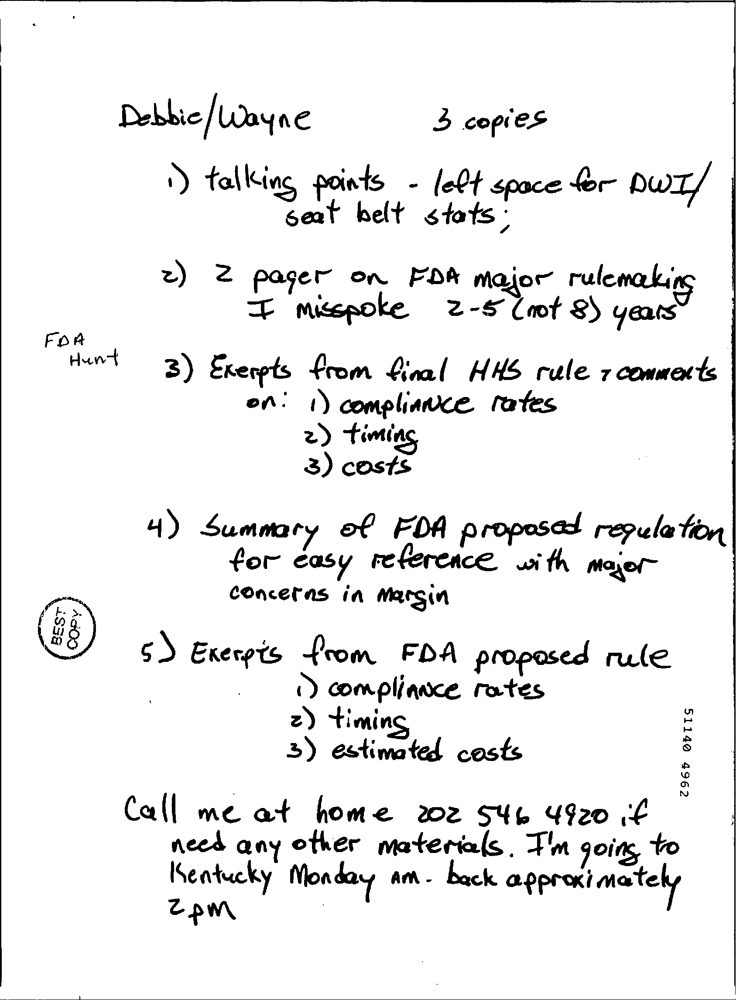 Debbie/Wayne 3 copies
1) talking points - left space for DWI/
seat belt stats;
2) 2 pager on FDA major rulemaking
I misspoke 2-5 (not 8) years
FDA
Hunt
3) Exerpts from final HHS rule & comments
on: 1) compliance rates
2) timing
3) costs
4) Summary of FDA proposed regulation
for easy reference with major
concerns in margin
BEST
COPY
5) Exerpts from FDA proposed rule
1) compliance rates
2) timing
3) estimated costs
51140 4962
Call me at home 202 546 4920 if
need any other materials. I'm going to
Kentucky Monday AM - back approximately
2 pm